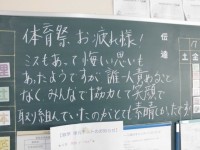 体育祭お疲れ様！
ミスもあって悔しい思いも
あったようですが誰一人責めること
なくみんなで協力して笑顔で
取り組んでいたのがとても素晴しかったです！
伝達
土
金